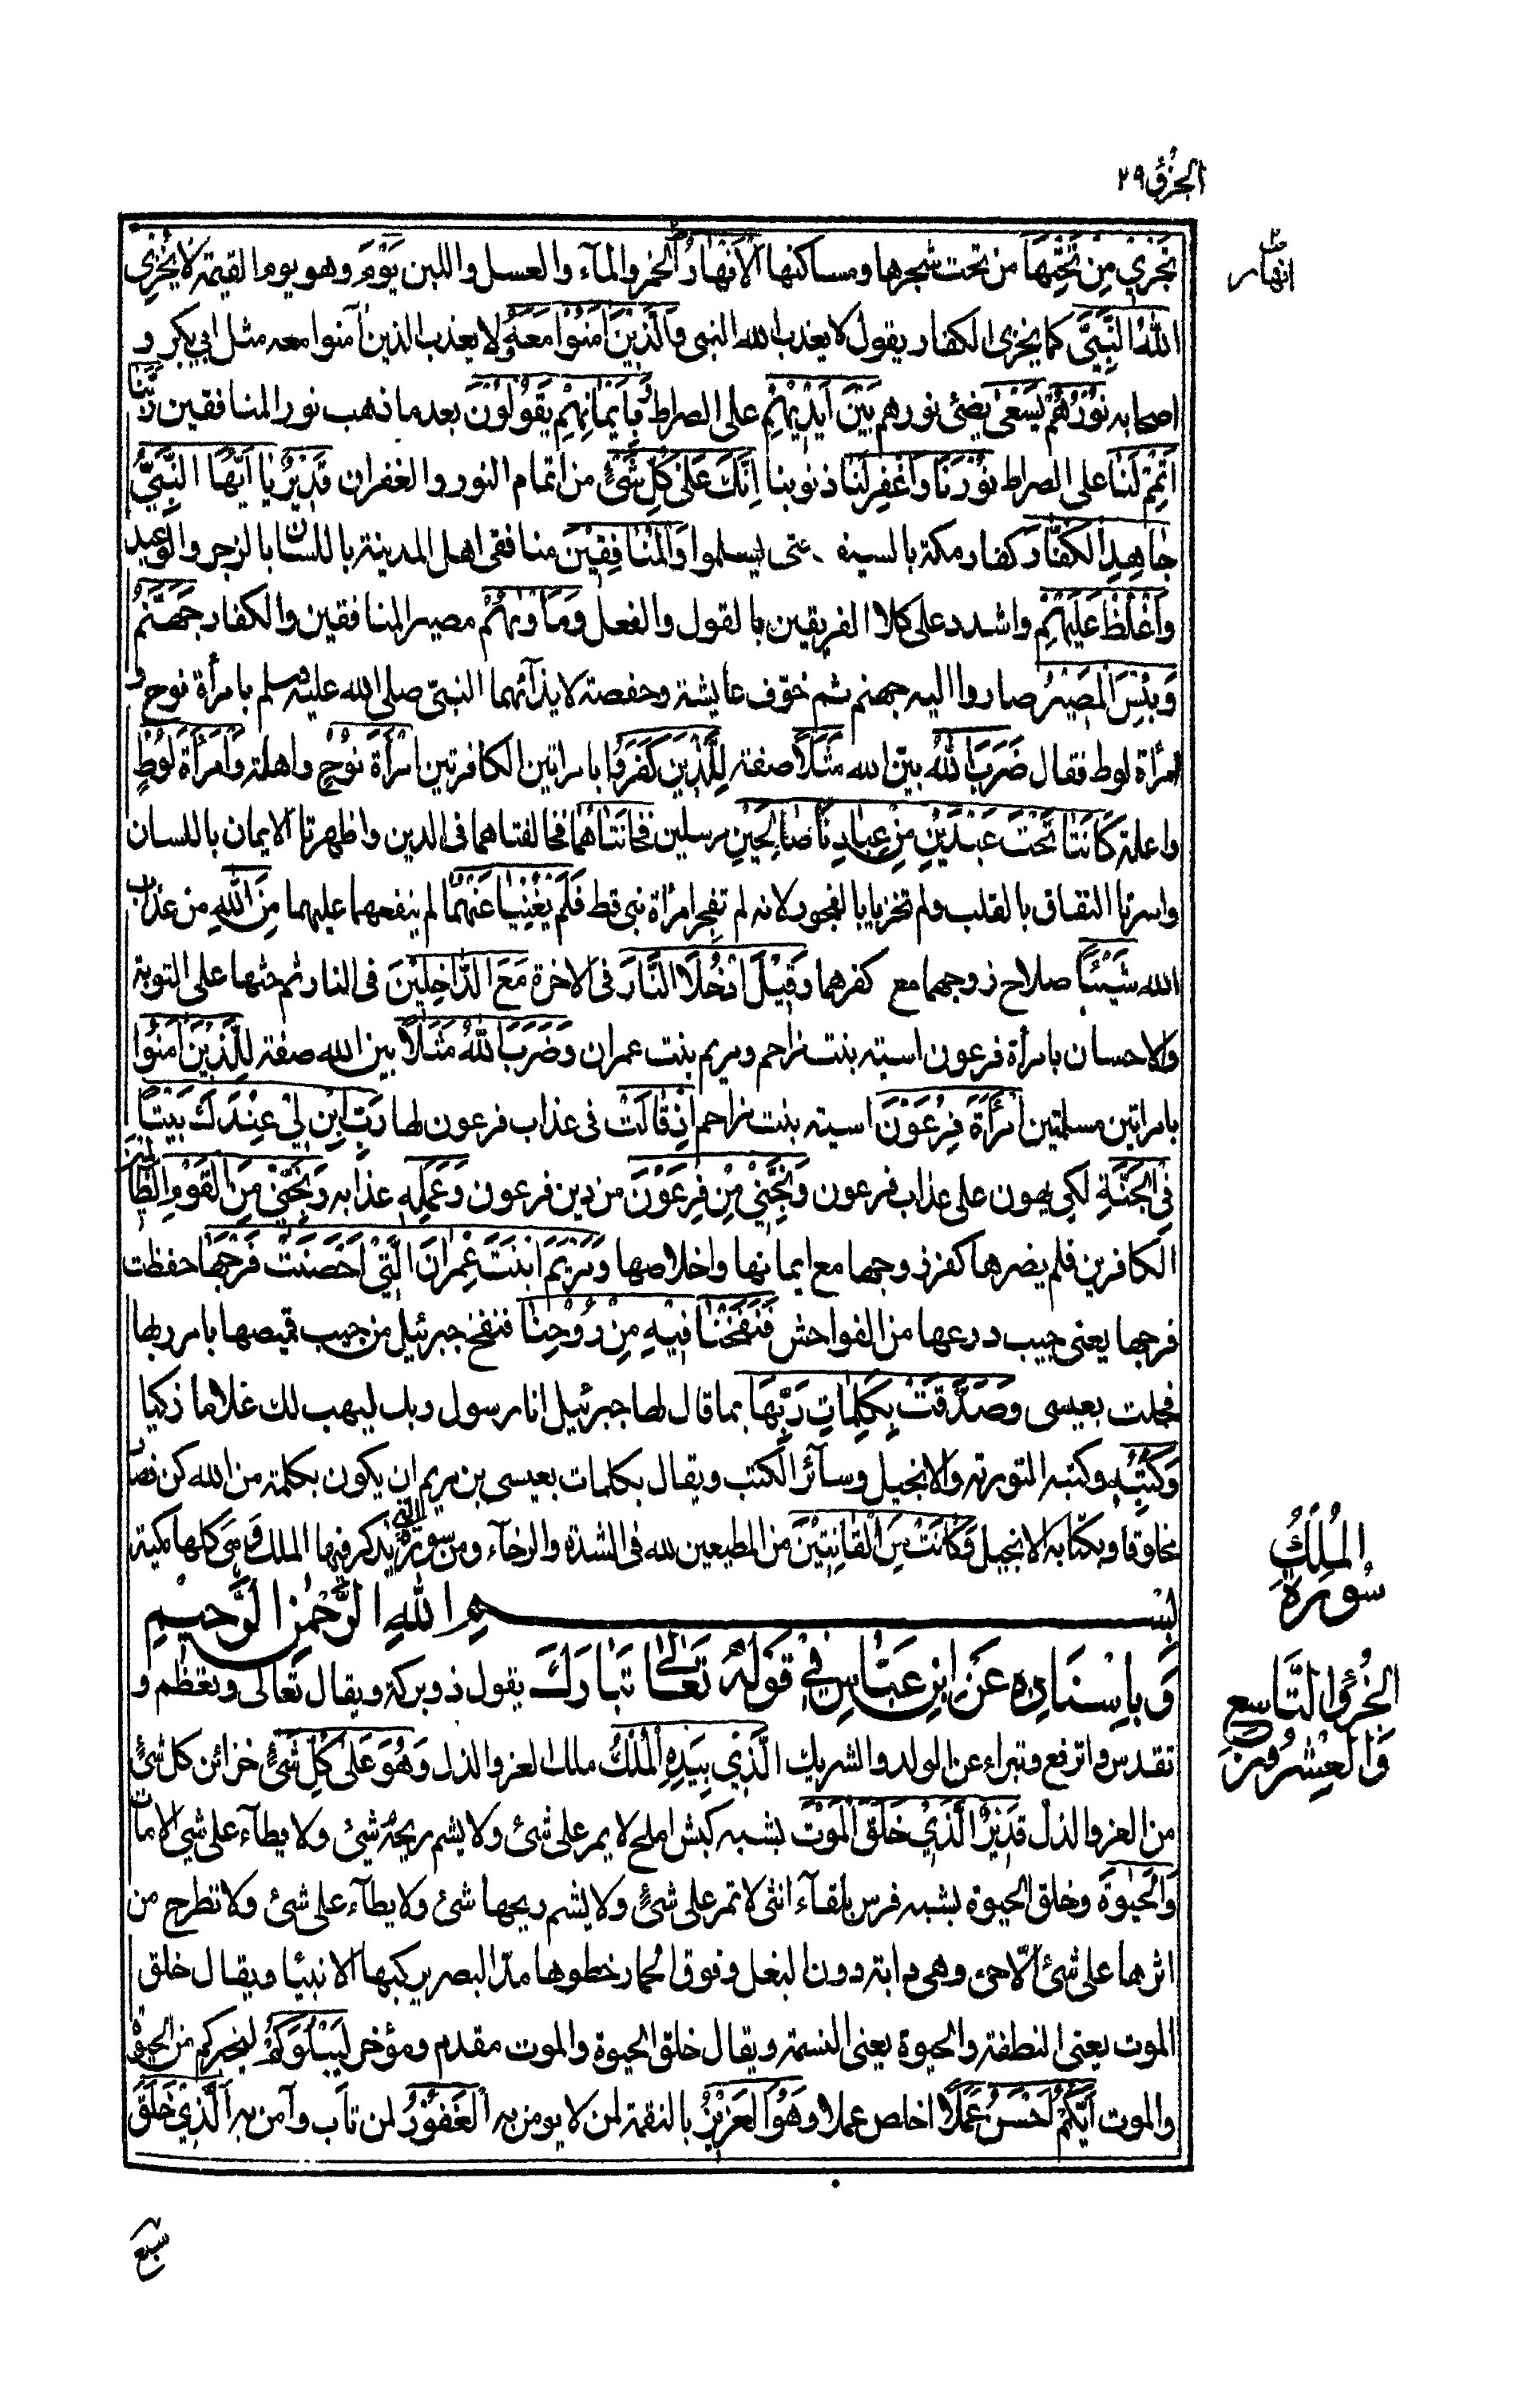 الجزؤ ٢٩
تَجْرِيْ مِنْ تَحْتِهَا من تحت شجرها ومساكنها الْاَنْهَارُ الخمر والمآء والعسل واللبن يَوْمَ وهو يوم القيمة لَا يُخْزِي
اللهُ النَّبِيَّ كما يخزى الكفار يقول لا يعذب الله النبى وَالَّذِيْنَ اٰمَنُوْا مَعَهٗ ولا يعذب الذين آمنوا معه مثل ابي بكر و
اصحابه نُوْرُهُمْ يَسْعٰى يضئ نورهم بَيْنَ اَيْدِيْهِمْ على الصراط وَبِاَيْمَانِهِمْ يَقُوْلُوْنَ بعد ما ذهب نور المنافقين رَبَّنَا
اَتْمِمْ لَنَا على الصراط نُوْرَنَا وَاغْفِرْ لَنَا ذنوبنا اِنَّكَ عَلٰى كُلِّ شَيْئٍ من اتمام النور والغفران قَدِيْرٌ يَا اَيُّهَا النَّبِيُّ
جَاهِدِ الْكُفَّارَ كفار مكة بالسيف حتى يسلموا وَالْمُنَافِقِيْنَ منافقى اهل المدينة باللسان بالزجر والوعيد
وَاغْلُظْ عَلَيْهِمْ واشدد على كلا الفريقين بالقول والفعل وَمَاْوٰىهُمْ مصير المنافقين والكفار جَهَنَّمُ
وَبِئْسَ الْمَصِيْرُ صاروا اليه جهنم ثم خوّف عايشة وحفصة لايذآئهما النبىّ صلى الله عليه وسلم بامرأة نوح و
امرأة لوط فقال ضَرَبَ اللهُ بيّن الله مَثَلًا صفة لِلَّذِيْنَ كَفَرُوا بامراتين الكافرتين امْرَأَةَ نُوْحٍ واهلة وَامْرَأَةَ لُوْطٍ
واعلة كَانَتَا تَحْتَ عَبْدَيْنِ مِنْ عِبَادِنَا صَالِحَيْنِ مرسلين فَخَانَتَاهُمَا فخالفتاهما فى الدين واظهرتا الايمان باللسان
واسرتا النفاق بالقلب ولم تخزيا بالفجور لانه لم تفجر امرأة نبى قط فَلَمْ يُغْنِيَا عَنْهُمَا لم ينفعهما عليهما مِنَ اللهِ من عذاب
الله شَيْئًا صلاح زوجهما مع كفرهما وَقِيْلَ ادْخُلَا النَّارَ فى الاخرة مَعَ الدَّاخِلِيْنَ فى النار ثم حثها على التوبة
والاحسان بامرأة فرعون اسية بنت مزاحم ومريم بنت عمران وَضَرَبَ اللهُ مَثَلًا بين الله صفة لِلَّذِيْنَ اٰمَنُوْا
بامراتين مسلمتين امْرَأَةَ فِرْعَوْنَ اسية بنت مزاحم اِذْ قَالَتْ فى عذاب فرعون لها رَبِّ ابْنِ لِيْ عِنْدَكَ بَيْتًا
فِي الْجَنَّةِ لكى يهون على عذاب فرعون وَنَجِّنِيْ مِنْ فِرْعَوْنَ من دين فرعون وَعَمَلِهٖ عذابه وَنَجِّنِيْ مِنَ الْقَوْمِ الظَّالِمِيْنَ
الكافرين فلم يضرها كفر زوجها مع ايمانها واخلاصها وَمَرْيَمَ ابْنَتَ عِمْرَانَ الَّتِيْ اَحْصَنَتْ فَرْجَهَا حفظت
فرجها يعنى جيب درعها من الفواحش فَنَفَخْنَا فِيْهِ مِنْ رُوْحِنَا فنفخ جبرئيل من جيب قميصها بامر ربها
فحملت بعيسى وَصَدَّقَتْ بِكَلِمَاتِ رَبِّهَا بما قال لها جبرئيل انا رسول ربك ليهب لك غلاما زكيا
وَكُتُبِهٖ وكتبه التورية والانجيل وسآئر الكتب ويقال بكلمات بعيسى بن مريم ان يكون بكلمة من الله كن فصار
مخلوقا وبكتابه الانجيل وَكَانَتْ مِنَ الْقَانِتِيْنَ من المطيعين لله فى الشدة والرخآء ومن سورة التي يذكر فيها الملك وهى كلها مكية
بِسْمِ اللهِ الرَّحْمٰنِ الرَّحِيْمِ
وَبِاِسْنَادِهٖ عَنِ ابْنِ عَبَّاسٍ فِيْ قَوْلِهٖ تَعَالٰى تَبَارَكَ يقول ذو بركة ويقال تعالى وتعظم و
تقدس وارتفع وتبراء عن الولد والشريك الَّذِيْ بِيَدِهِ الْمُلْكُ ملك العز والذل وَهُوَ عَلٰى كُلِّ شَيْئٍ خزائن كل شئ
من العز والذل قَدِيْرٌ الَّذِيْ خَلَقَ الْمَوْتَ بشبه كبش املح لا يمر على شئ ولا يشم ريحه شئ ولا يطآء على شئ الا مات
وَالْحَيٰوةَ وخلق الحيوة بشبه فرس بلقآء انثى لا تمر على شئ ولا يشم ريحها شئ ولا يطآء على شئ ولا تطرح من
اثرها على شئ الّا حيى وهى دابة دون البغل وفوق الحمار خطوها مدّ البصر يركبها الانبيا ويقال خلق
الموت يعنى النطفة والحيوة يعنى النسمة ويقال خلق الحيوة والموت مقدم ومؤخر لِيَبْلُوَكُمْ ليخبركم من الحيوة
والموت اَيُّكُمْ اَحْسَنُ عَمَلًا اخلص عملا وَهُوَ الْعَزِيْزُ بالنقمة لمن لا يومن به الْغَفُوْرُ لمن تاب وآمن به الَّذِيْ خَلَقَ
انهار
الْمُلْكُ
سُورَة
الْجُزْؤُ التَّاسِع
وَالْعِشْرُوْنَ
سَبْعَ